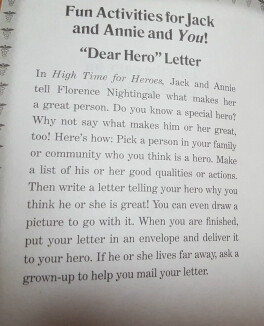 Fun Activities for Jack
and Annie and You!
“Dear Hero” Letter
In High Time for Heroes, Jack and Annie
tell Florence Nightingale what makes her
a great person. Do you know a special hero?
Why not say what makes him or her great,
too! Here’s how: Pick a person in your family
or community who you think is a hero. Make
a list of his or her good qualities or actions.
Then write a letter telling your hero why you
think he or she is great! You can even draw a
picture to go with it. When you are finished,
put your letter in an envelope and deliver it
to your hero. If he or she lives far away, ask a
grown-up to help you mail your letter.